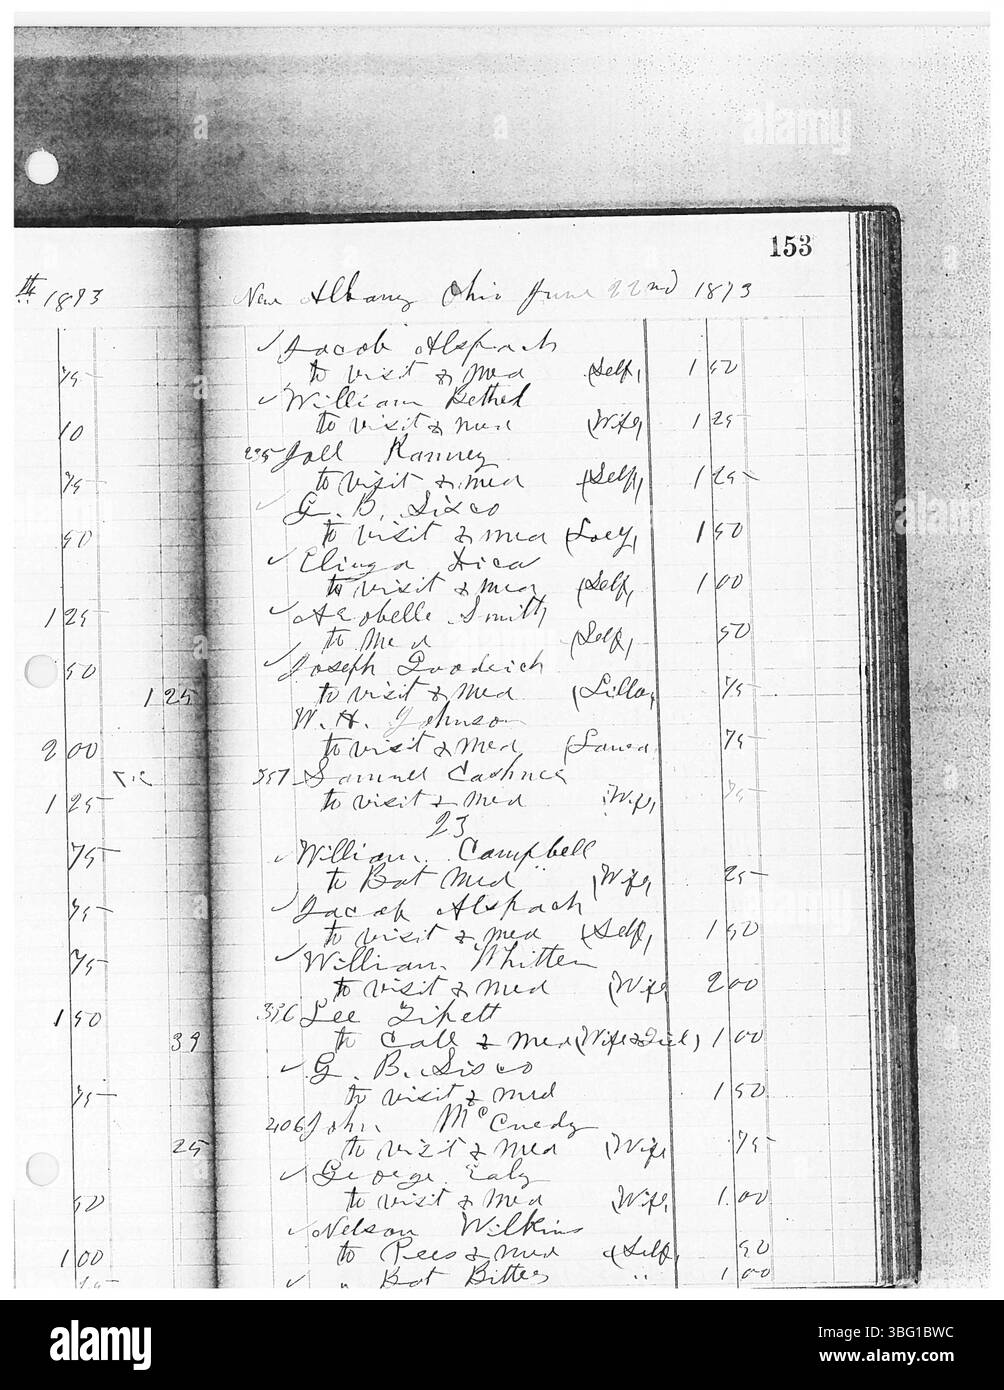 153
th 1893
New Albany Ohio June 22nd 1893
✓ Jacob Alspach
75 to visit & med (Self) 1 50
✓ William Bethel
10 to visit & med (Wife) 1 25
235 Joll Ranney
75 to visit & med (Self) 1 25
✓ G. B. Sisco
50 to visit & med (Loey) 1 50
✓ Rica
to visit & med (Self) 1 00
1 25 ✓ Smith
to Med (Self) 50
50 ✓ Joseph Goodrich
1 25 to visit & med (Lilla) 75
W. H. Johnson
2 00 to visit & med (Laura) 75
357 Samuel
1 25 to visit & med (Wife) 75
23
75 ✓ William Campbell
to Bot Med (Wife) 25
75 ✓ Jacob Alspach
to visit & med (Self) 1 50
75 ✓ William Whitten
to visit & med (Wife) 2 00
1 50 Lee
39 to Call & med (Wife & ) 1 00
✓ G. B. Sisco
75 to visit & med 1 50
406 John McCurdy
25 to visit & med (Wife) 75
✓ George Ealy
50 to visit & med (Wife) 1 00
✓ Nelson Wilkins
1 00 to & med (Self) 50
✓ " Bot Bitters " 1 00
alamy
Image ID: 3BG1BWC
www.alamy.com